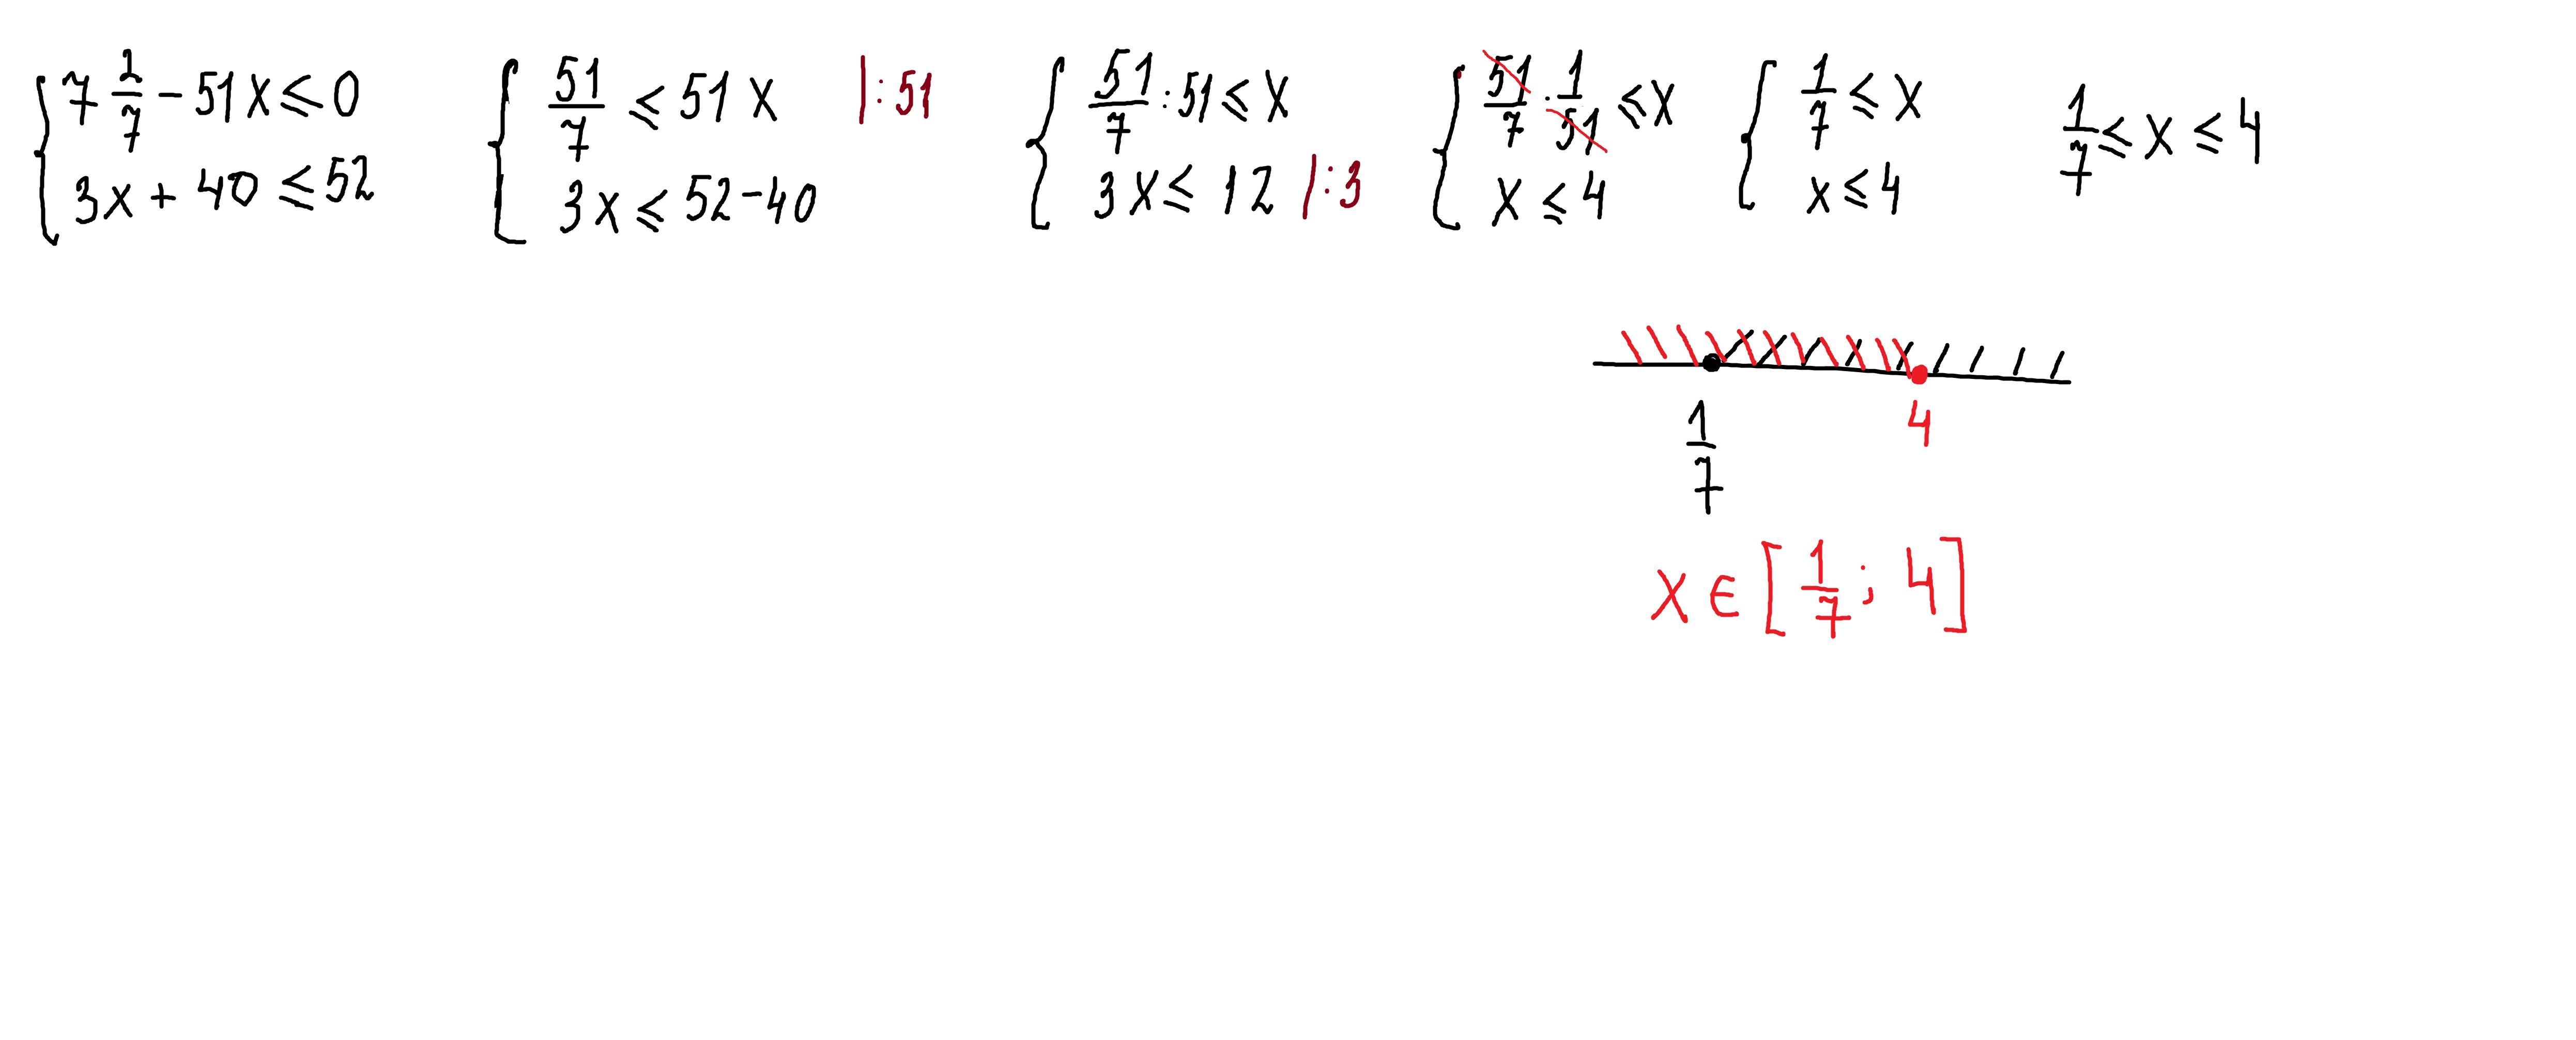 { 7 2/7 - 51x ⩽ 0
3x + 40 ⩽ 52
{ 51/7 ⩽ 51x |:51
3x ⩽ 52-40
{ 51/7 :51 ⩽ x
3x ⩽ 12 |:3
{ 51/7 · 1/51 ⩽ x
x ⩽ 4
{ 1/7 ⩽ x
x ⩽ 4
1/7 ⩽ x ⩽ 4
1/7 4
x ∈ [1/7; 4]